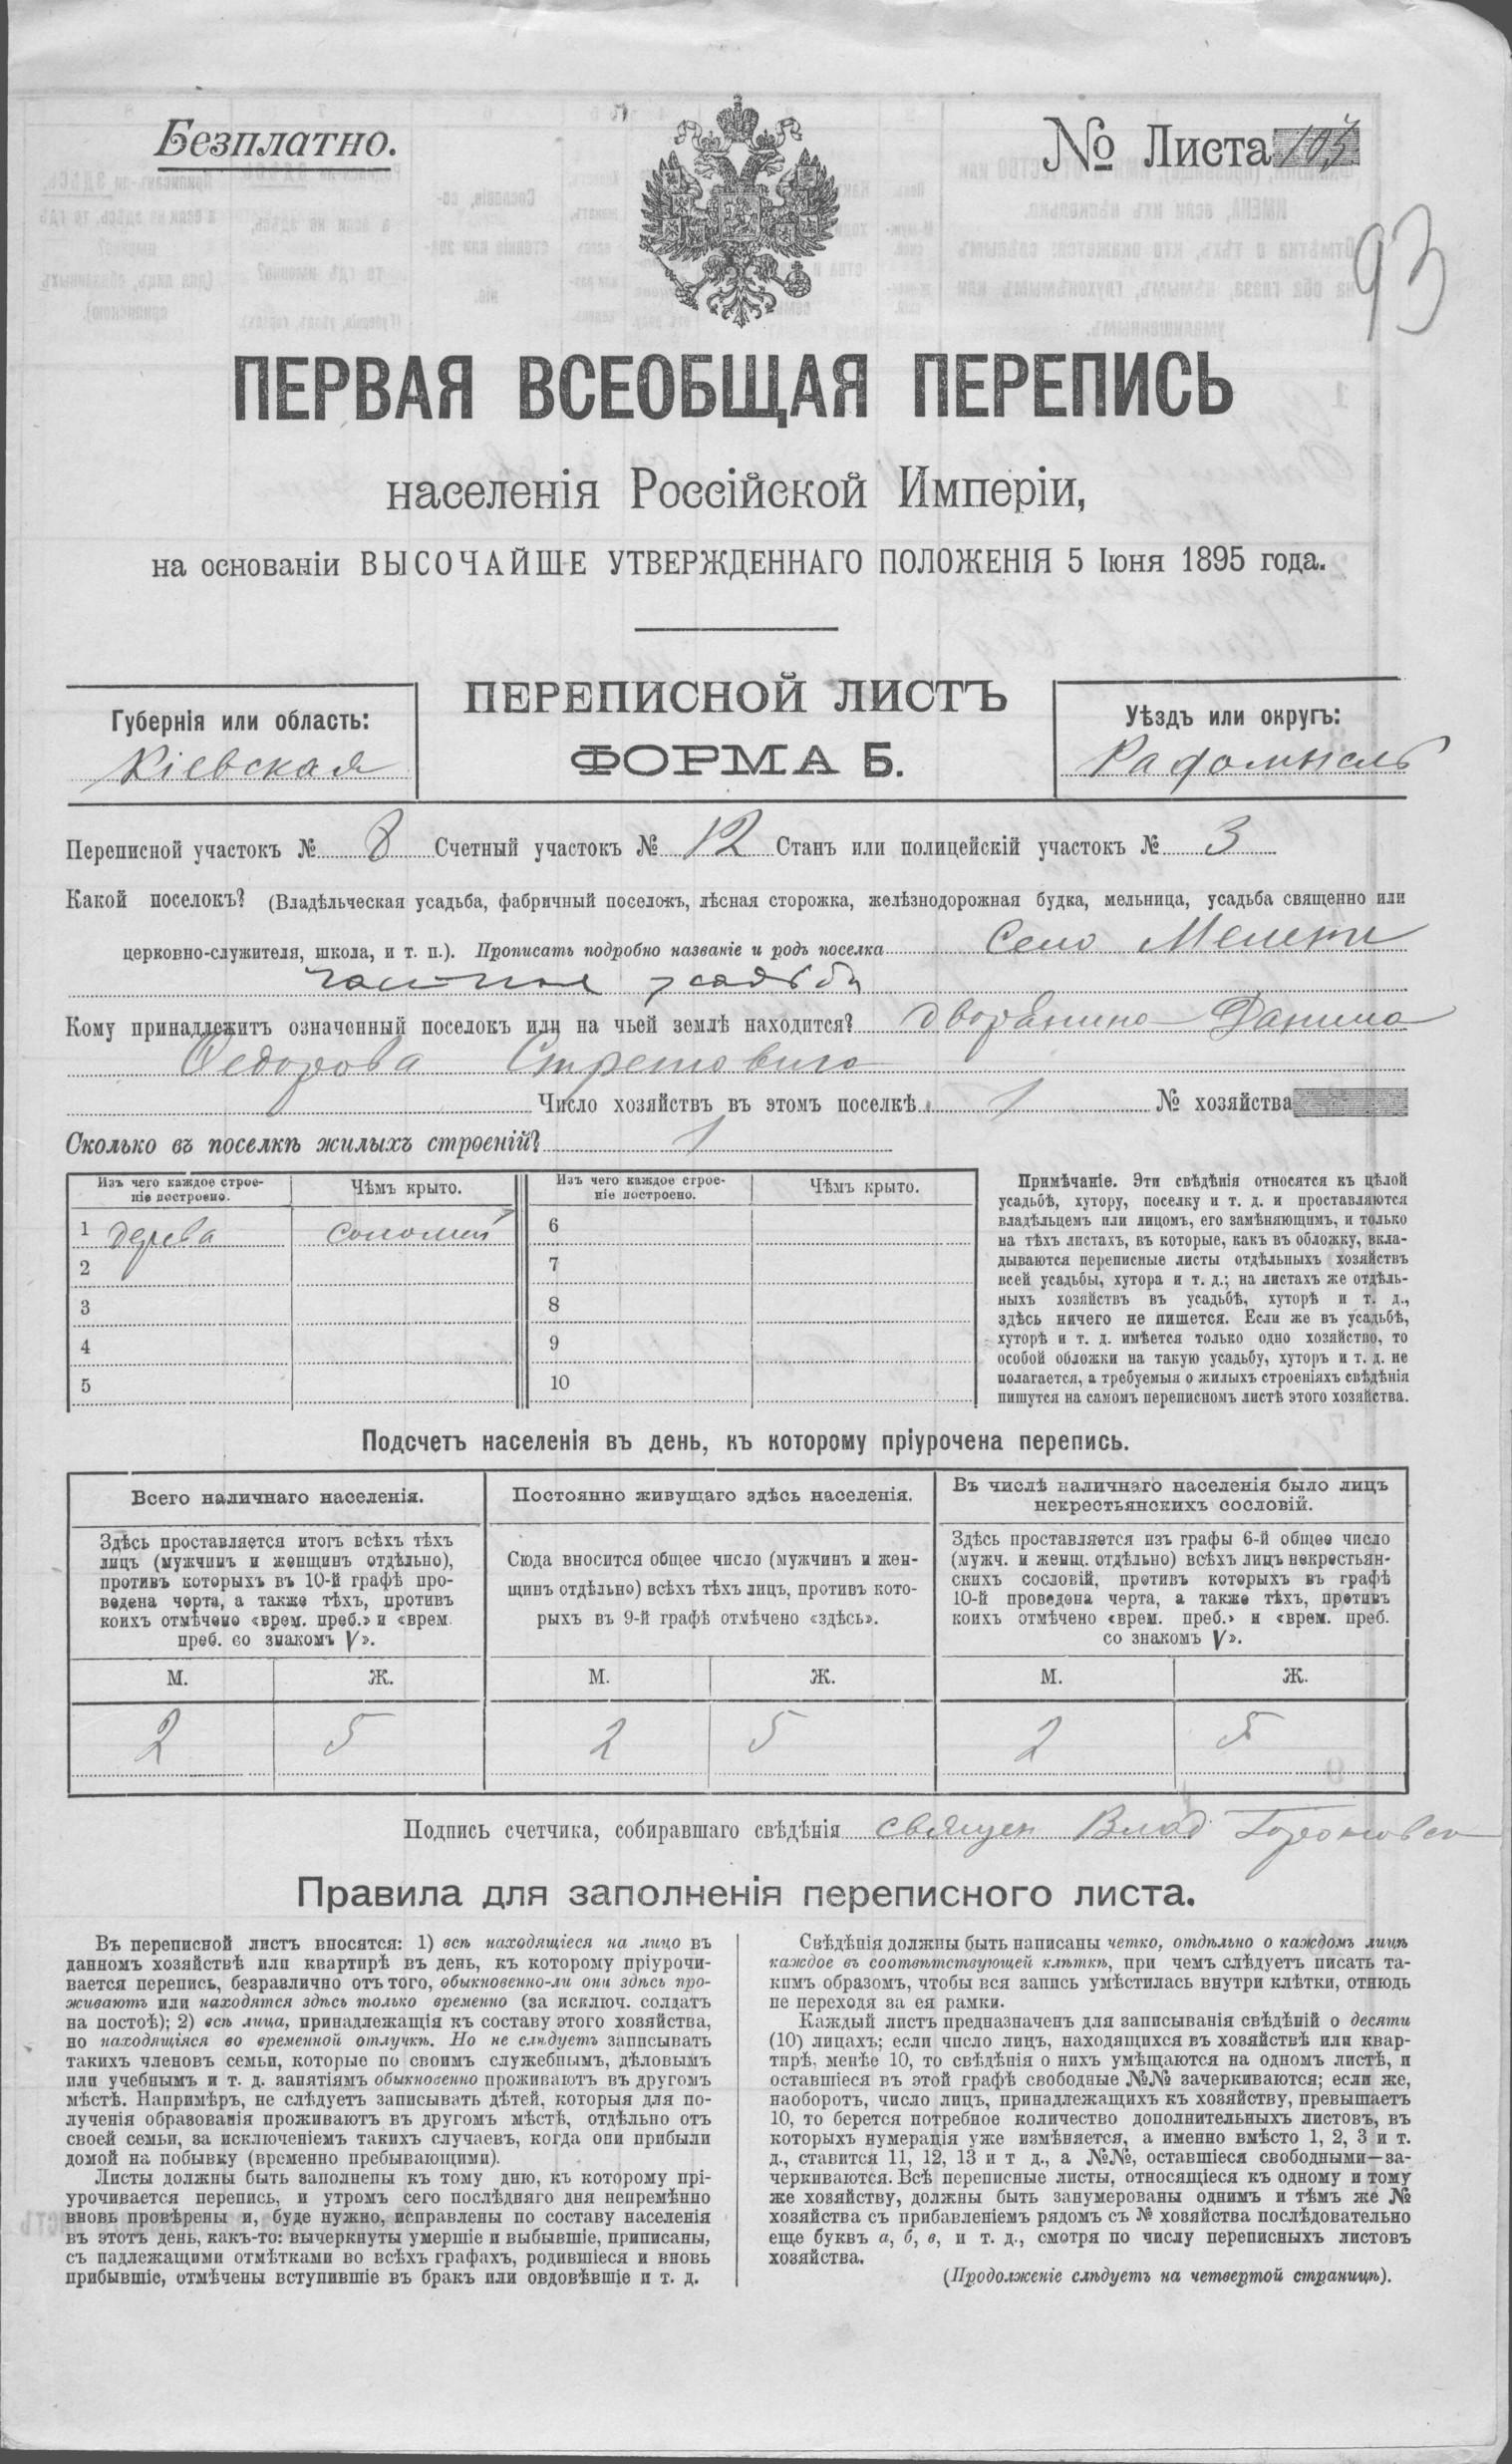 Безплатно.
№ Листа 103
93
ПЕРВАЯ ВСЕОБЩАЯ ПЕРЕПИСЬ
населенія Россійской Имперіи,
на основаніи ВЫСОЧАЙШЕ УТВЕРЖДЕННАГО ПОЛОЖЕНІЯ 5 Іюня 1895 года.
ПЕРЕПИСНОЙ ЛИСТЪ
ФОРМА Б.
Губернія или область:
Кіевская
Уѣздъ или округъ:
Радомысль
Переписной участокъ № 8 Счетный участокъ № 12 Станъ или полицейскій участокъ № 3
Какой поселокъ? (Владѣльческая усадьба, фабричный поселокъ, лѣсная сторожка, желѣзнодорожная будка, мельница, усадьба священно или
церковно-служителя, школа, и т. п.). Прописать подробно названіе и родъ поселка Село Мелени
усадьба
Кому принадлежитъ означенный поселокъ или на чьей землѣ находится? дворянина Данила
Федорова
Число хозяйствъ въ этомъ поселкѣ 1 № хозяйства
Сколько въ поселкѣ жилыхъ строеній? 1
Изъ чего каждое строе-
ніе построено.
Чѣмъ крыто.
Изъ чего каждое строе-
ніе построено.
Чѣмъ крыто.
1 дерева соломой
2
3
4
5
6
7
8
9
10
Примѣчаніе. Эти свѣдѣнія относятся къ цѣлой
усадьбѣ, хутору, поселку и т. д. и проставляются
владѣльцемъ или лицомъ, его замѣняющимъ, и только
на тѣхъ листахъ, въ которые, какъ въ обложку, вкла-
дываются переписные листы отдѣльныхъ хозяйствъ
всей усадьбы, хутора и т. д.; на листахъ же отдѣль-
ныхъ хозяйствъ въ усадьбѣ, хуторѣ и т. д.,
здѣсь ничего не пишется. Если же въ усадьбѣ,
хуторѣ и т. д. имѣется только одно хозяйство, то
особой обложки на такую усадьбу, хуторъ и т. д. не
полагается, а требуемыя о жилыхъ строеніяхъ свѣдѣнія
пишутся на самомъ переписномъ листѣ этого хозяйства.
Подсчетъ населенія въ день, къ которому пріурочена перепись.
Всего наличнаго населенія.
Здѣсь проставляется итогъ всѣхъ тѣхъ
лицъ (мужчинъ и женщинъ отдѣльно),
противъ которыхъ въ 10-й графѣ про-
ведена черта, а также тѣхъ, противъ
коихъ отмѣчено «врем. преб.» и «врем
преб. со знакомъ V».
М. Ж.
2 5
Постоянно живущаго здѣсь населенія.
Сюда вносится общее число (мужчинъ и жен-
щинъ отдѣльно) всѣхъ тѣхъ лицъ, противъ кото-
рыхъ въ 9-й графѣ отмѣчено «здѣсь».
М. Ж.
2 5
Въ числѣ наличнаго населенія было лицъ
некрестьянскихъ сословій.
Здѣсь проставляется изъ графы 6-й общее число
(мужч. и женщ. отдѣльно) всѣхъ лицъ некрестьян-
скихъ сословій, противъ которыхъ въ графѣ
10-й проведена черта, а также тѣхъ, противъ
коихъ отмѣчено «врем. преб.» и «врем. преб.
со знакомъ V».
М. Ж.
2 5
Подпись счетчика, собиравшаго свѣдѣнія священ Влад
Правила для заполненія переписного листа.
Въ переписной листъ вносятся: 1) всѣ находящіеся на лицо въ
данномъ хозяйствѣ или квартирѣ въ день, къ которому пріурочи-
вается перепись, безразлично отъ того, обыкновенно-ли они здѣсь про-
живаютъ или находятся здѣсь только временно (за исключ. солдатъ
на постоѣ); 2) всѣ лица, принадлежащія къ составу этого хозяйства,
но находящіяся во временной отлучкѣ. Но не слѣдуетъ записывать
такихъ членовъ семьи, которые по своимъ служебнымъ, дѣловымъ
или учебнымъ и т. д. занятіямъ обыкновенно проживаютъ въ другомъ
мѣстѣ. Напримѣръ, не слѣдуетъ записывать дѣтей, которыя для по-
лученія образованія проживаютъ въ другомъ мѣстѣ, отдѣльно отъ
своей семьи, за исключеніемъ такихъ случаевъ, когда они прибыли
домой на побывку (временно пребывающими).
Листы должны быть заполнены къ тому дню, къ которому прі-
урочивается перепись, и утромъ сего послѣдняго дня непремѣнно
вновь провѣрены и, буде нужно, исправлены по составу населенія
въ этотъ день, какъ-то: вычеркнуты умершіе и выбывшіе, приписаны,
съ надлежащими отмѣтками во всѣхъ графахъ, родившіеся и вновь
прибывшіе, отмѣчены вступившіе въ бракъ или овдовѣвшіе и т. д.
Свѣдѣнія должны быть написаны четко, отдѣльно о каждомъ лицѣ
каждое въ соотвѣтствующей клѣткѣ, при чемъ слѣдуетъ писать та-
кимъ образомъ, чтобы вся запись умѣстилась внутри клѣтки, отнюдь
не переходя за ея рамки.
Каждый листъ предназначенъ для записыванія свѣдѣній о десяти
(10) лицахъ; если число лицъ, находящихся въ хозяйствѣ или квар-
тирѣ, менѣе 10, то свѣдѣнія о нихъ умѣщаются на одномъ листѣ, и
оставшіеся въ этой графѣ свободные №№ зачеркиваются; если же,
наоборотъ, число лицъ, принадлежащихъ къ хозяйству, превышаетъ
10, то берется потребное количество дополнительныхъ листовъ, въ
которыхъ нумерація уже измѣняется, а именно вмѣсто 1, 2, 3 и т.
д., ставится 11, 12, 13 и т д., а №№, оставшіеся свободными—за-
черкиваются. Всѣ переписные листы, относящіеся къ одному и тому
же хозяйству, должны быть занумерованы однимъ и тѣмъ же №
хозяйства съ прибавленіемъ рядомъ съ № хозяйства послѣдовательно
еще буквъ а, б, в, и т. д., смотря по числу переписныхъ листовъ
хозяйства.
(Продолженіе слѣдуетъ на четвертой страницѣ).